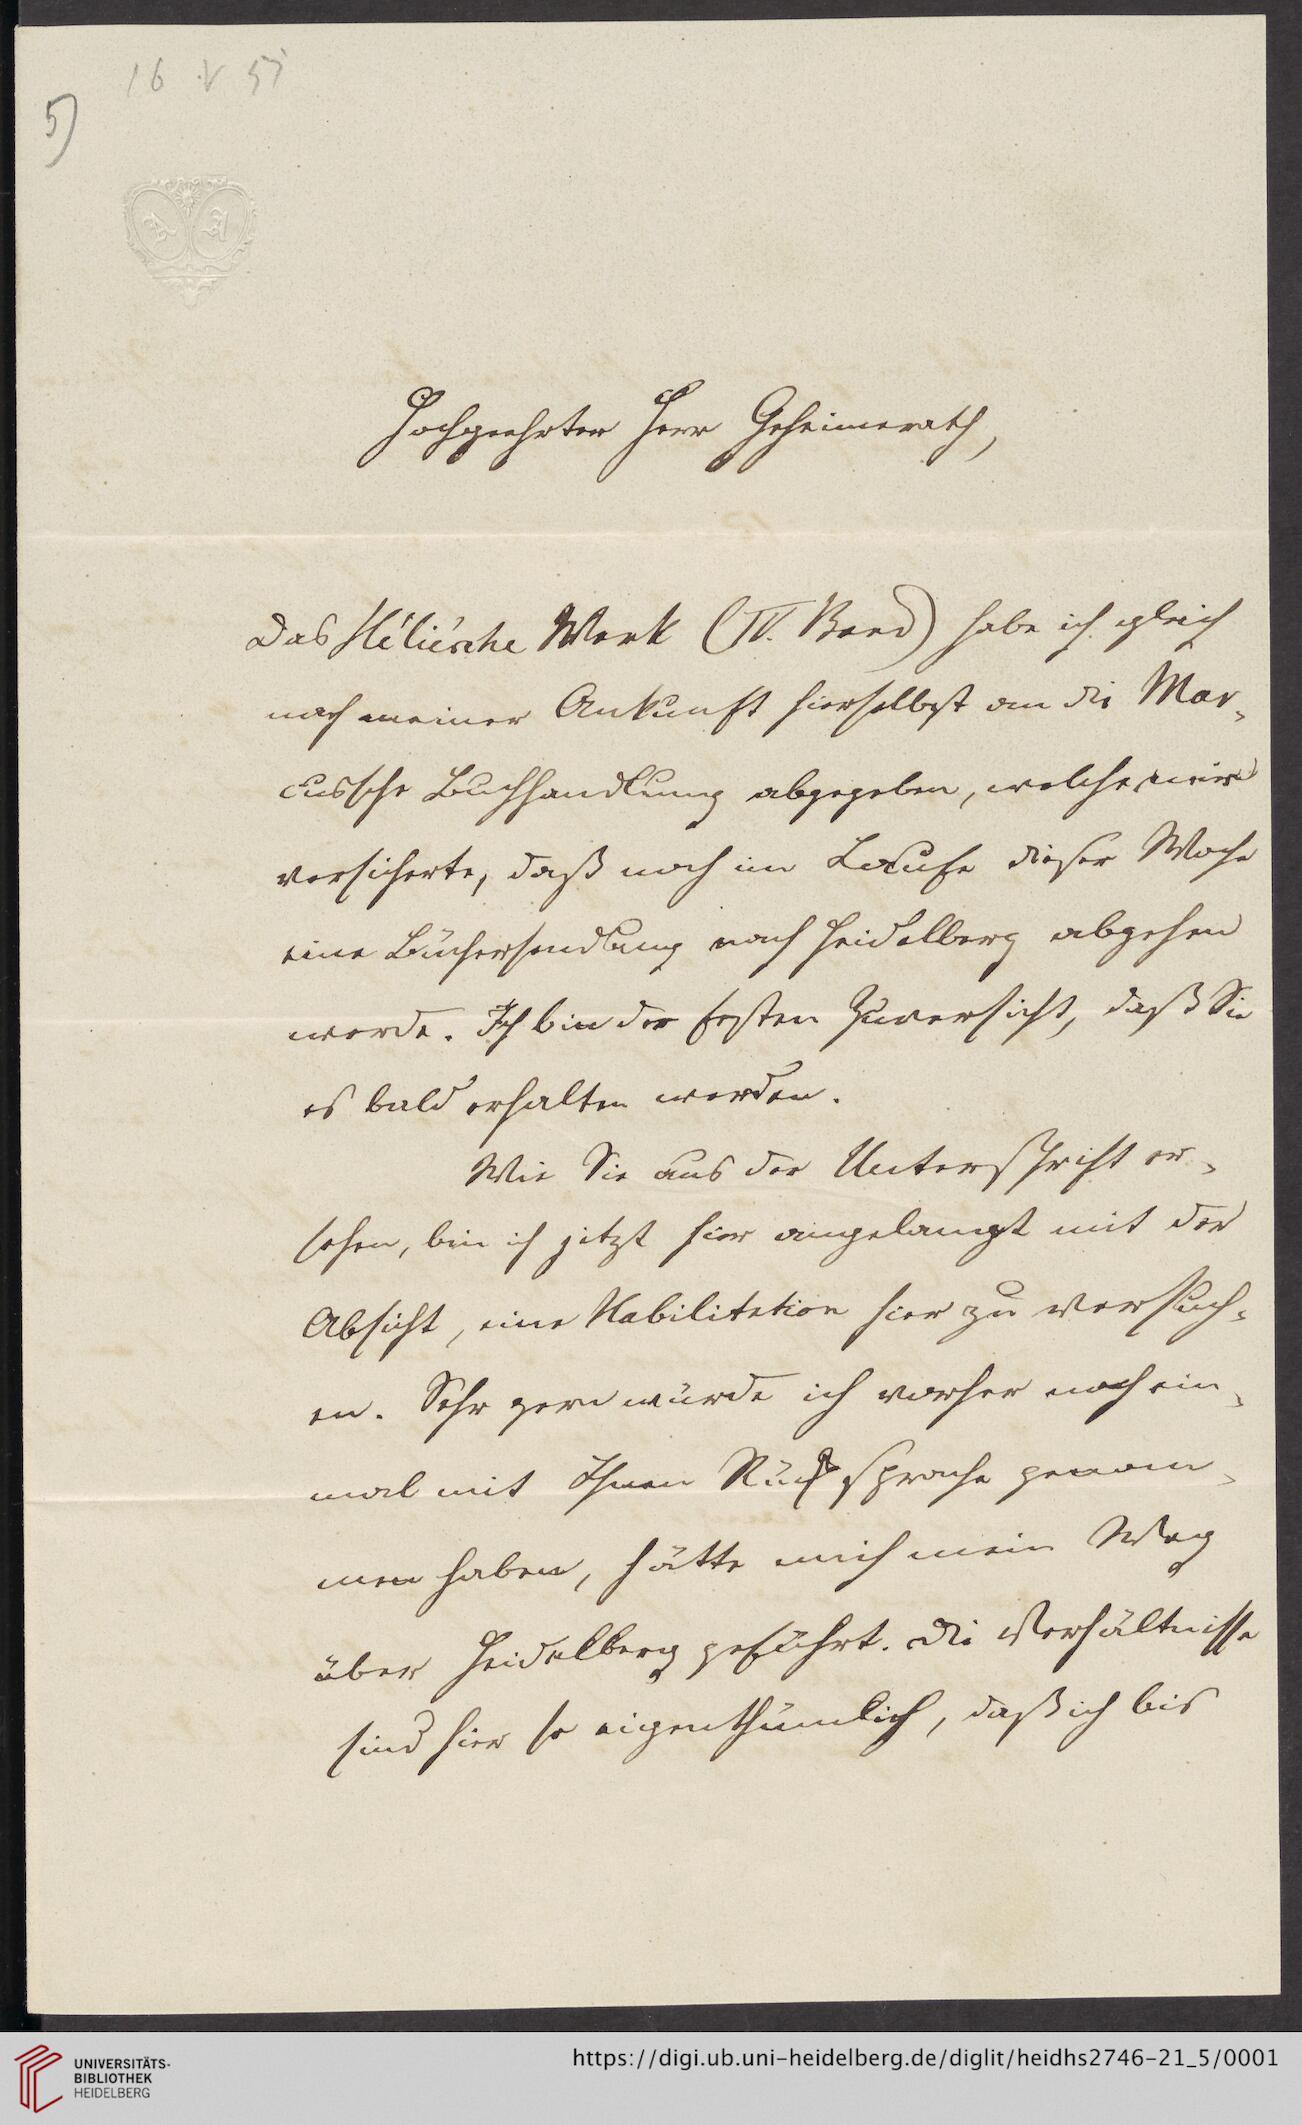 16 V 57
5)
Hochgeehrter Herr Geheimerath,
Das Hélie'sche Werk (IV. Band) habe ich gleich
nach meiner Ankunft hierselbst an die Mar-
cussche Buchhandlung abgegeben, welche mir
versicherte, daß noch im Laufe dieser Woche
eine Büchersendung nach Heidelberg abgehen
werde. Ich bin der festen Zuversicht, daß Sie
es bald erhalten werden.
Wie Sie aus der Unterschrift er-
sehen, bin ich jetzt hier angelangt mit der
Absicht, eine Habilitation hier zu versuch-
en. Sehr gern würde ich vorher noch ein-
mal mit Ihnen Rücksprache genom-
men haben, hätte mich mein Weg
über Heidelberg geführt. Die Verhältnisse
sind hier so eigenthümlich, daß ich bis
UNIVERSITÄTS-
BIBLIOTHEK
HEIDELBERG
https://digi.ub.uni-heidelberg.de/diglit/heidhs2746-21_5/0001